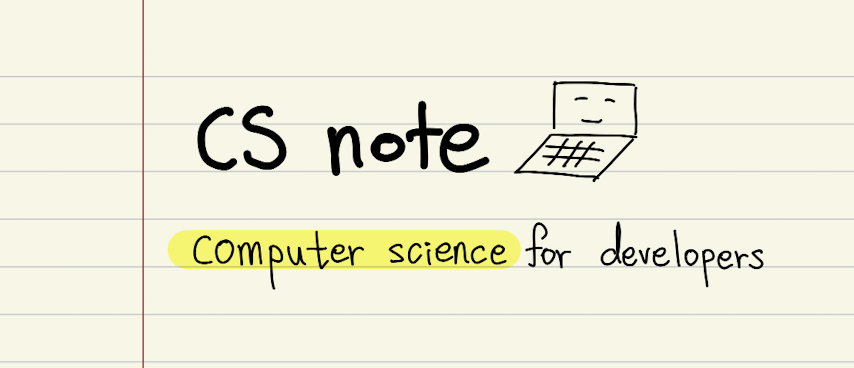 CS note
computer science for developers